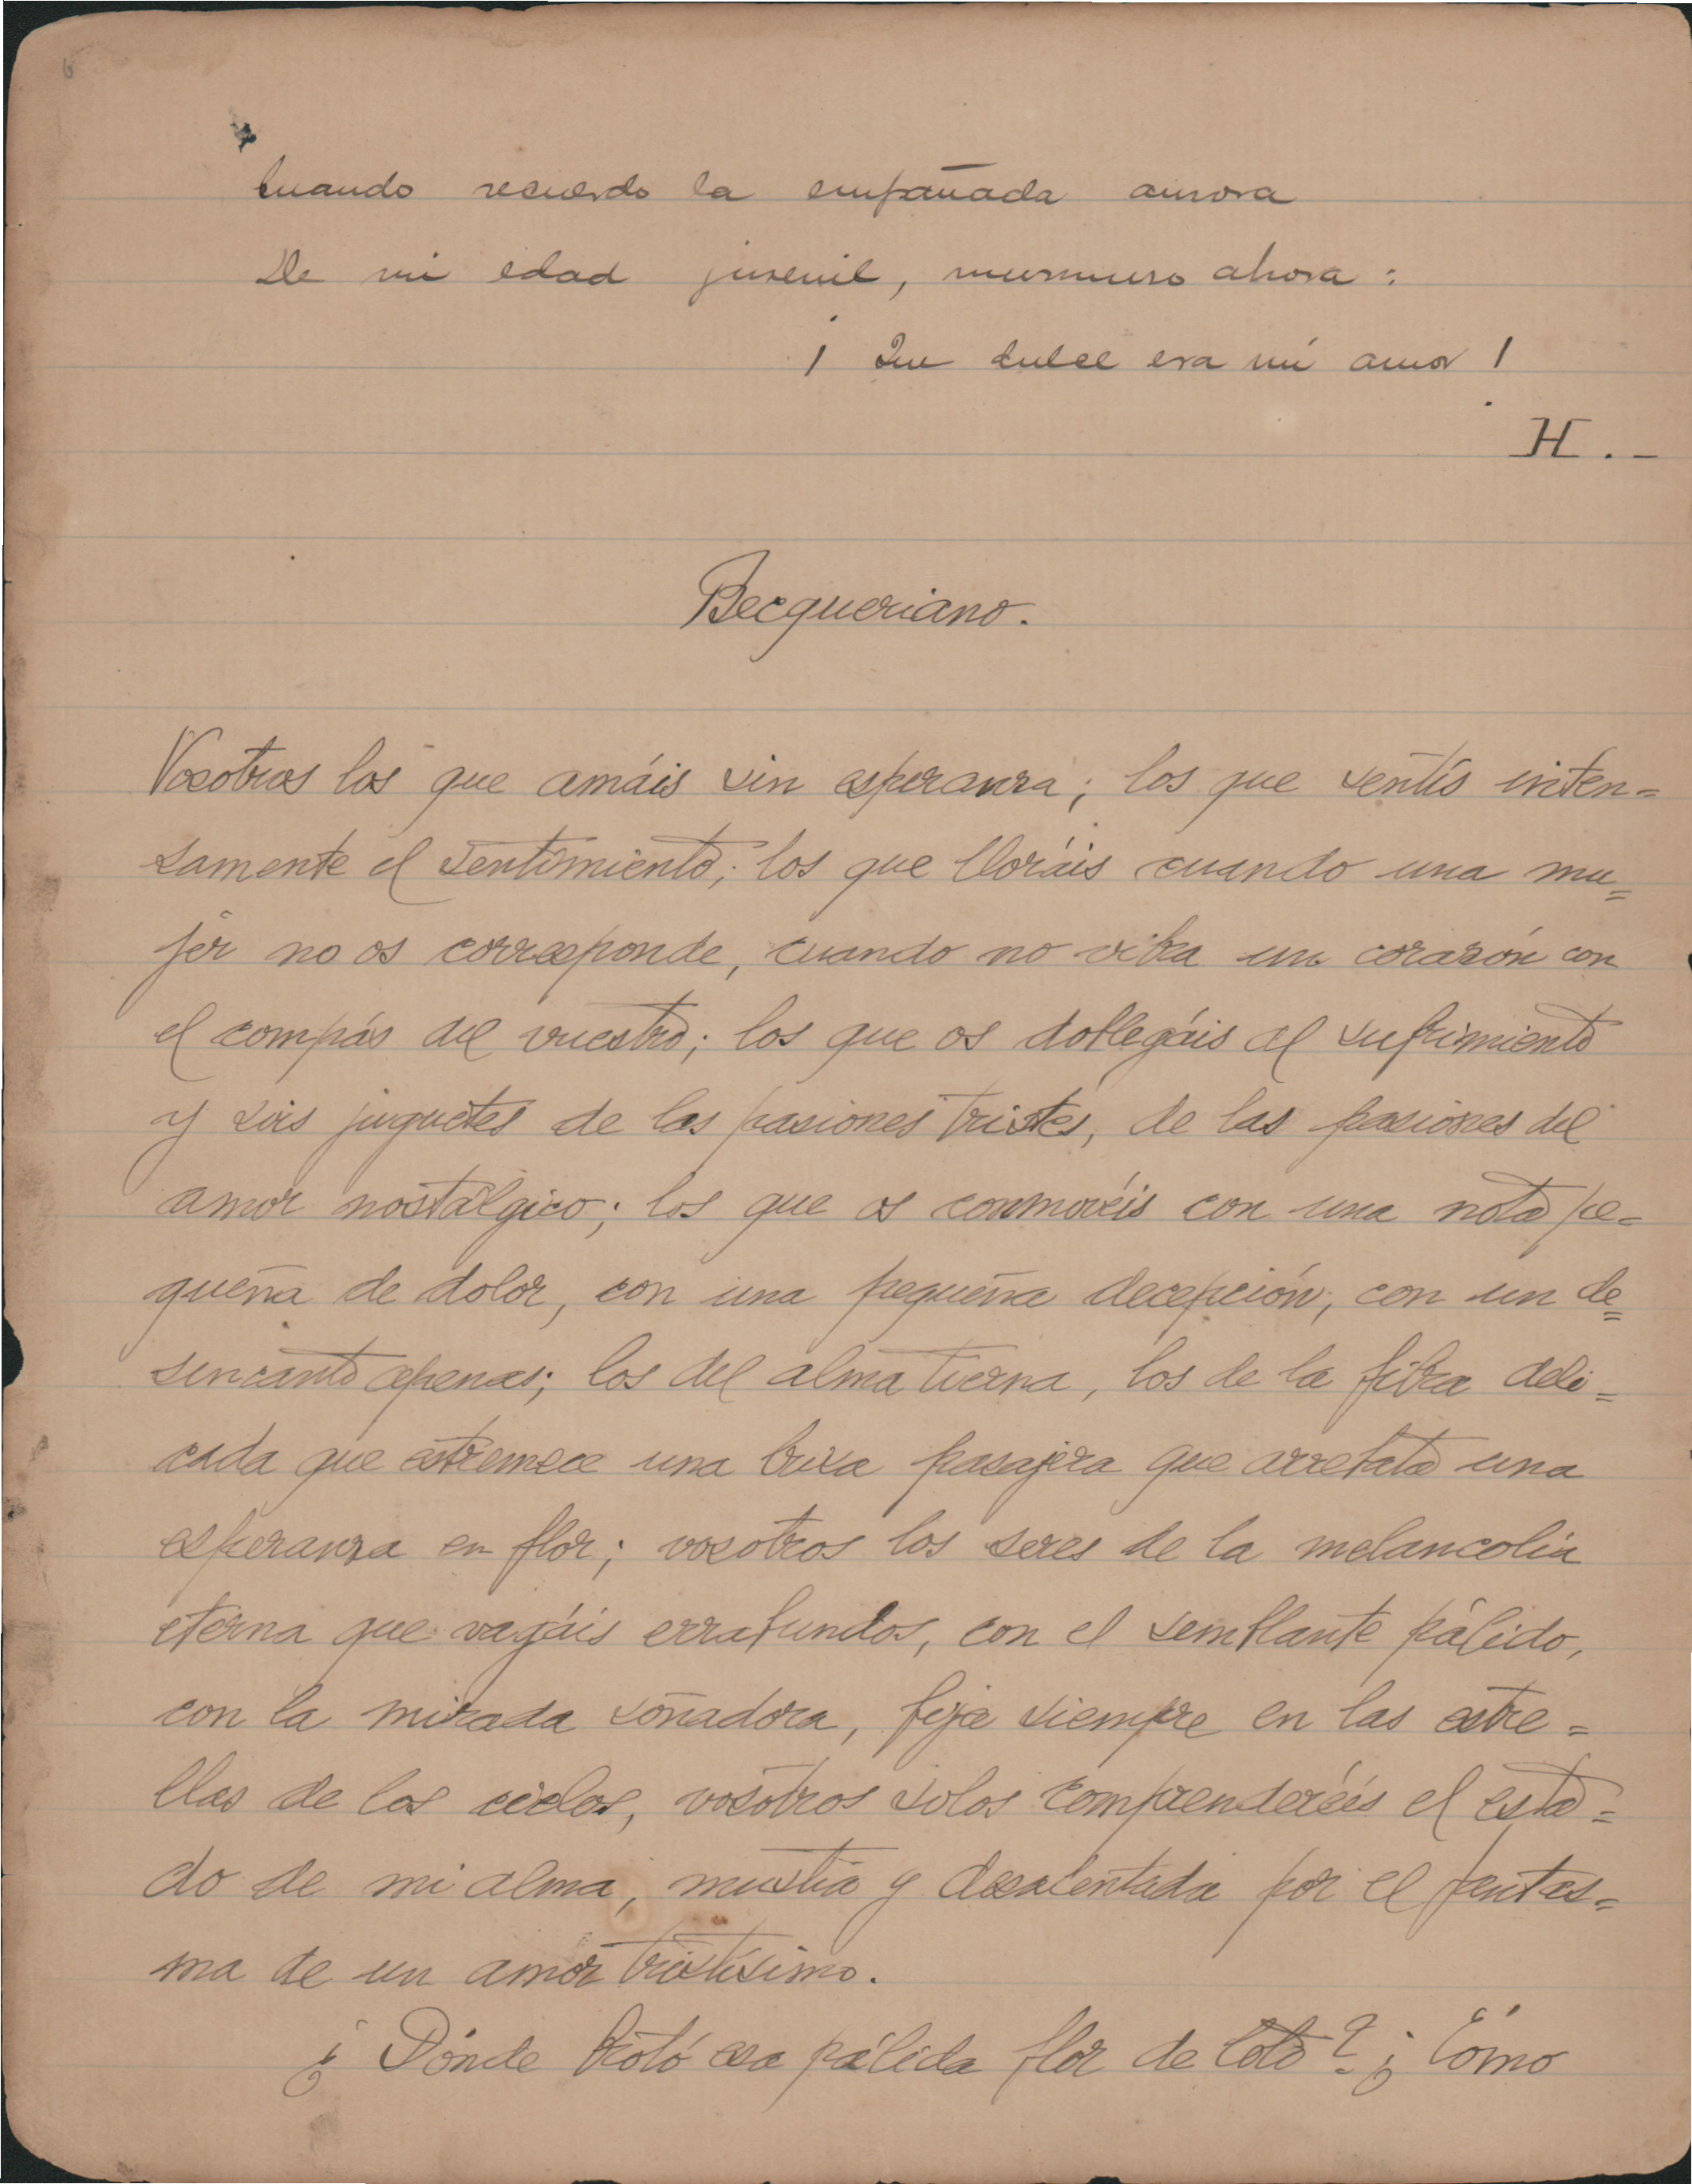 6
Cuando recuerdo la empañada aurora
De mi edad juvenil, murmuro ahora:
¡Que dulce era mi amor!
H.-
Becqueriano.
Vosotros los que amáis sin esperanza; los que sentís inten=
samente el sentimiento; los que lloráis cuando una mu=
jer no os corresponde, cuando no vibra un corazón con
el compás del vuestro; los que os doblegáis al sufrimiento
y sois juguetes de las pasiones tristes, de las pasiones del
amor nostálgico; los que os conmovéis con una nota pe=
queña de dolor, con una pequeña decepción, con un de=
sencanto apenas; los del alma tierna, los de la fibra deli=
cada que estremece una brisa pasajera que arrebata una
esperanza en flor; vosotros los seres de la melancolía
eterna que vagáis errabundos, con el semblante pálido,
con la mirada soñadora, fija siempre en las estre=
llas de los cielos, vosotros solos comprenderéis el esta=
do de mi alma, mustia y desalentada por el fantas=
ma de un amor tristísimo.
¿Dónde brotó esa pálida flor de loto? ¿Cómo